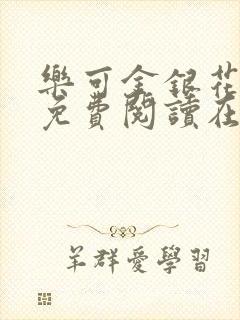 樂可金銀花
免費閱讀在
羊群愛學習